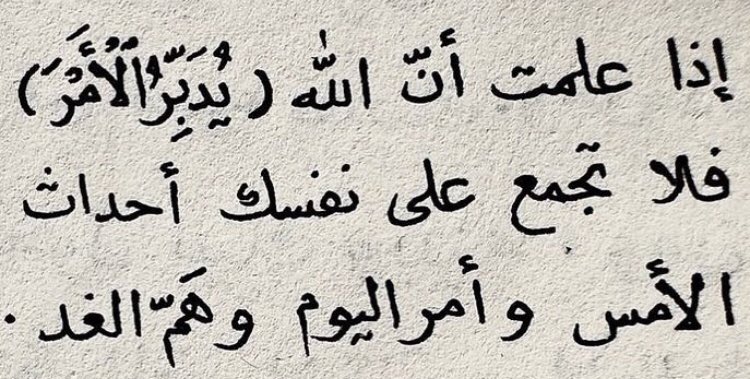 إذا علمت أنّ الله (يُدَبِّرُ الْأَمْرَ)
فلا تجمع على نفسك أحداث
الأمس وأمر اليوم وهَمّ الغد.